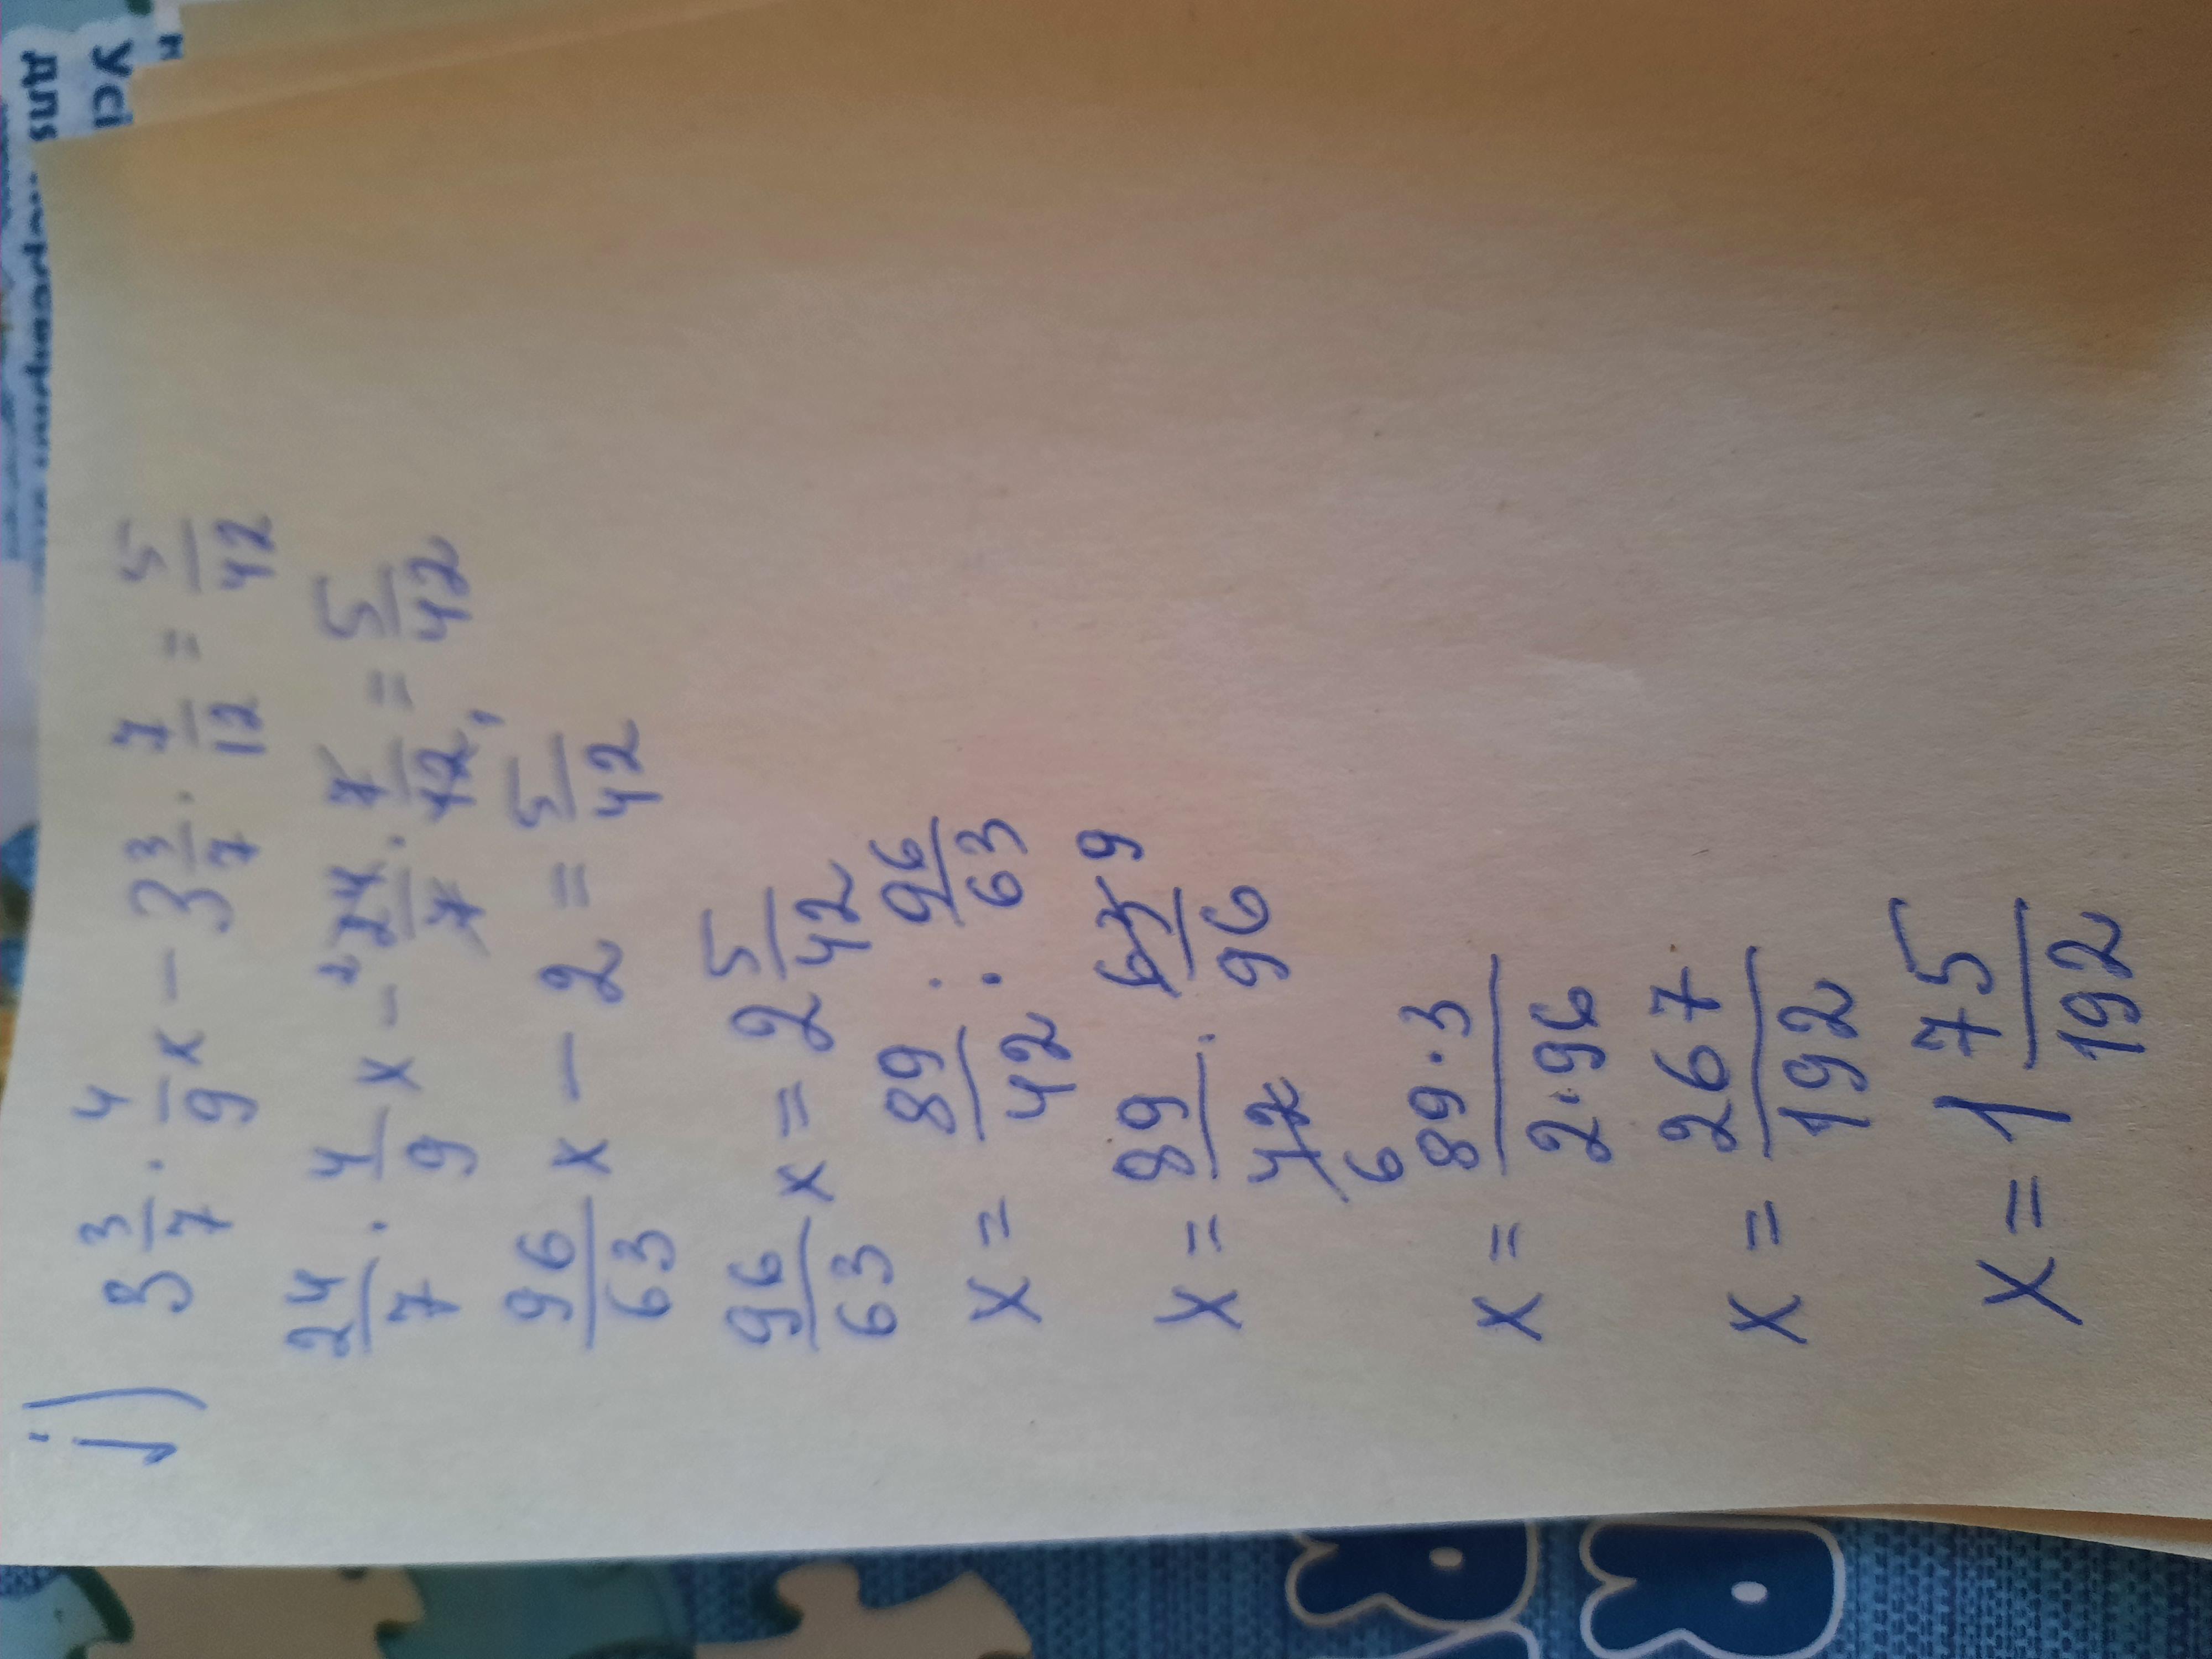 j) 3 3/7 · 4/9 x − 3 3/7 · 7/12 = 5/42
24/7 · 4/9 x − 2 24/7 · 7/12 1 = 5/42
96/63 x − 2 = 5/42
96/63 x = 2 5/42
x = 89/42 : 96/63
x = 89/42 6 · 63 9/96
x = 89·3/2·96
x = 267/192
x = 1 75/192
Усі
R